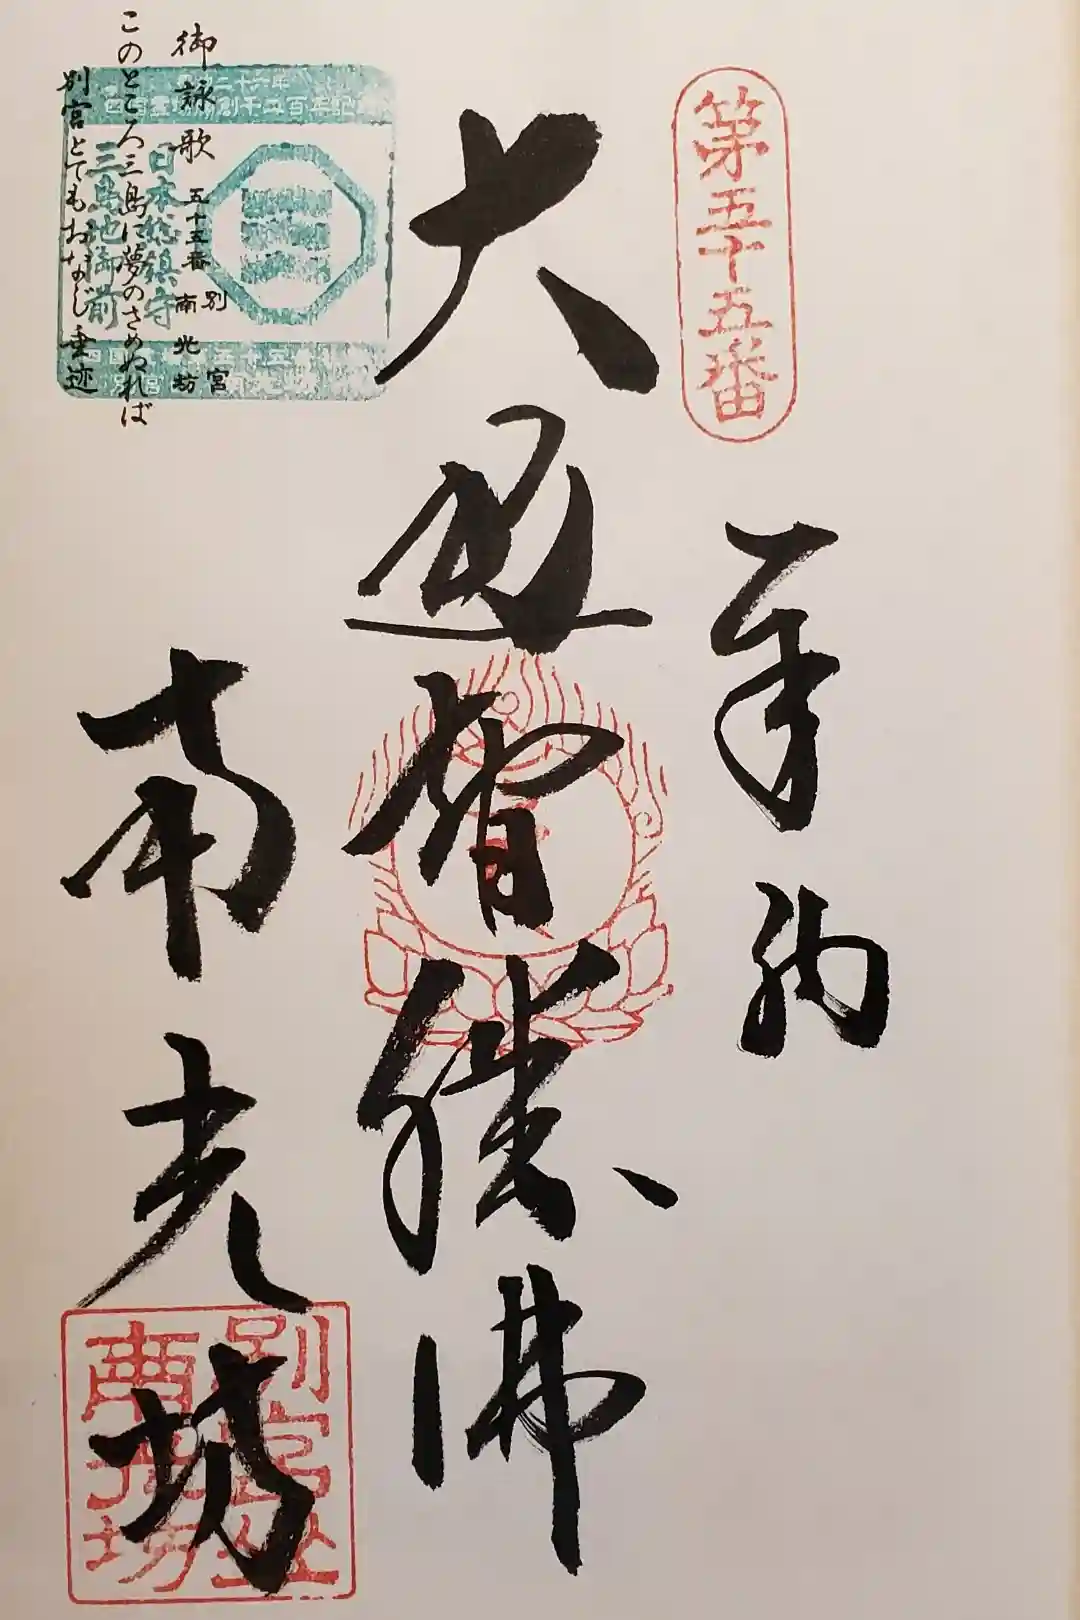 第五十五番
奉納
大通智勝佛
南光坊
御詠歌 五十五番 別宮 南光坊
このところ三島に夢のさめぬれば
別宮とてもおなじ垂迹
日本総鎮守
三島地御前
別宮山
南光坊